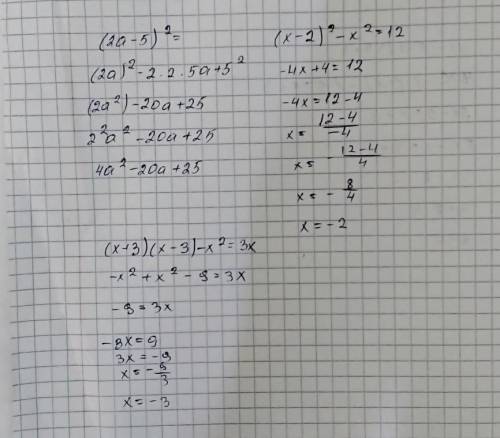 (2a-5)²=
(2a)²-2.2.5a+5²
(2a²)-20a+25
2²a²-20a+25
4a²-20a+25
(x-2)²-x²=12
-4x+4=12
-4x=12-4
x=12-4/-4
x=-12-4/4
x=-8/4
x=-2
(x+3)(x-3)-x²=3x
-x²+x²-9=3x
-9=3x
-3x=9
3x=-9
x=-9/3
x=-3